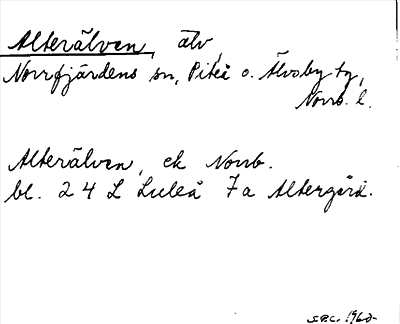 Alterälven, älv,
Norrfjärdens sn, Piteå o. Älvsby tg,
Norrb. l.
Alterälven, ek Norrb.
bl. 24 L Luleå 7a Altergård.
1960